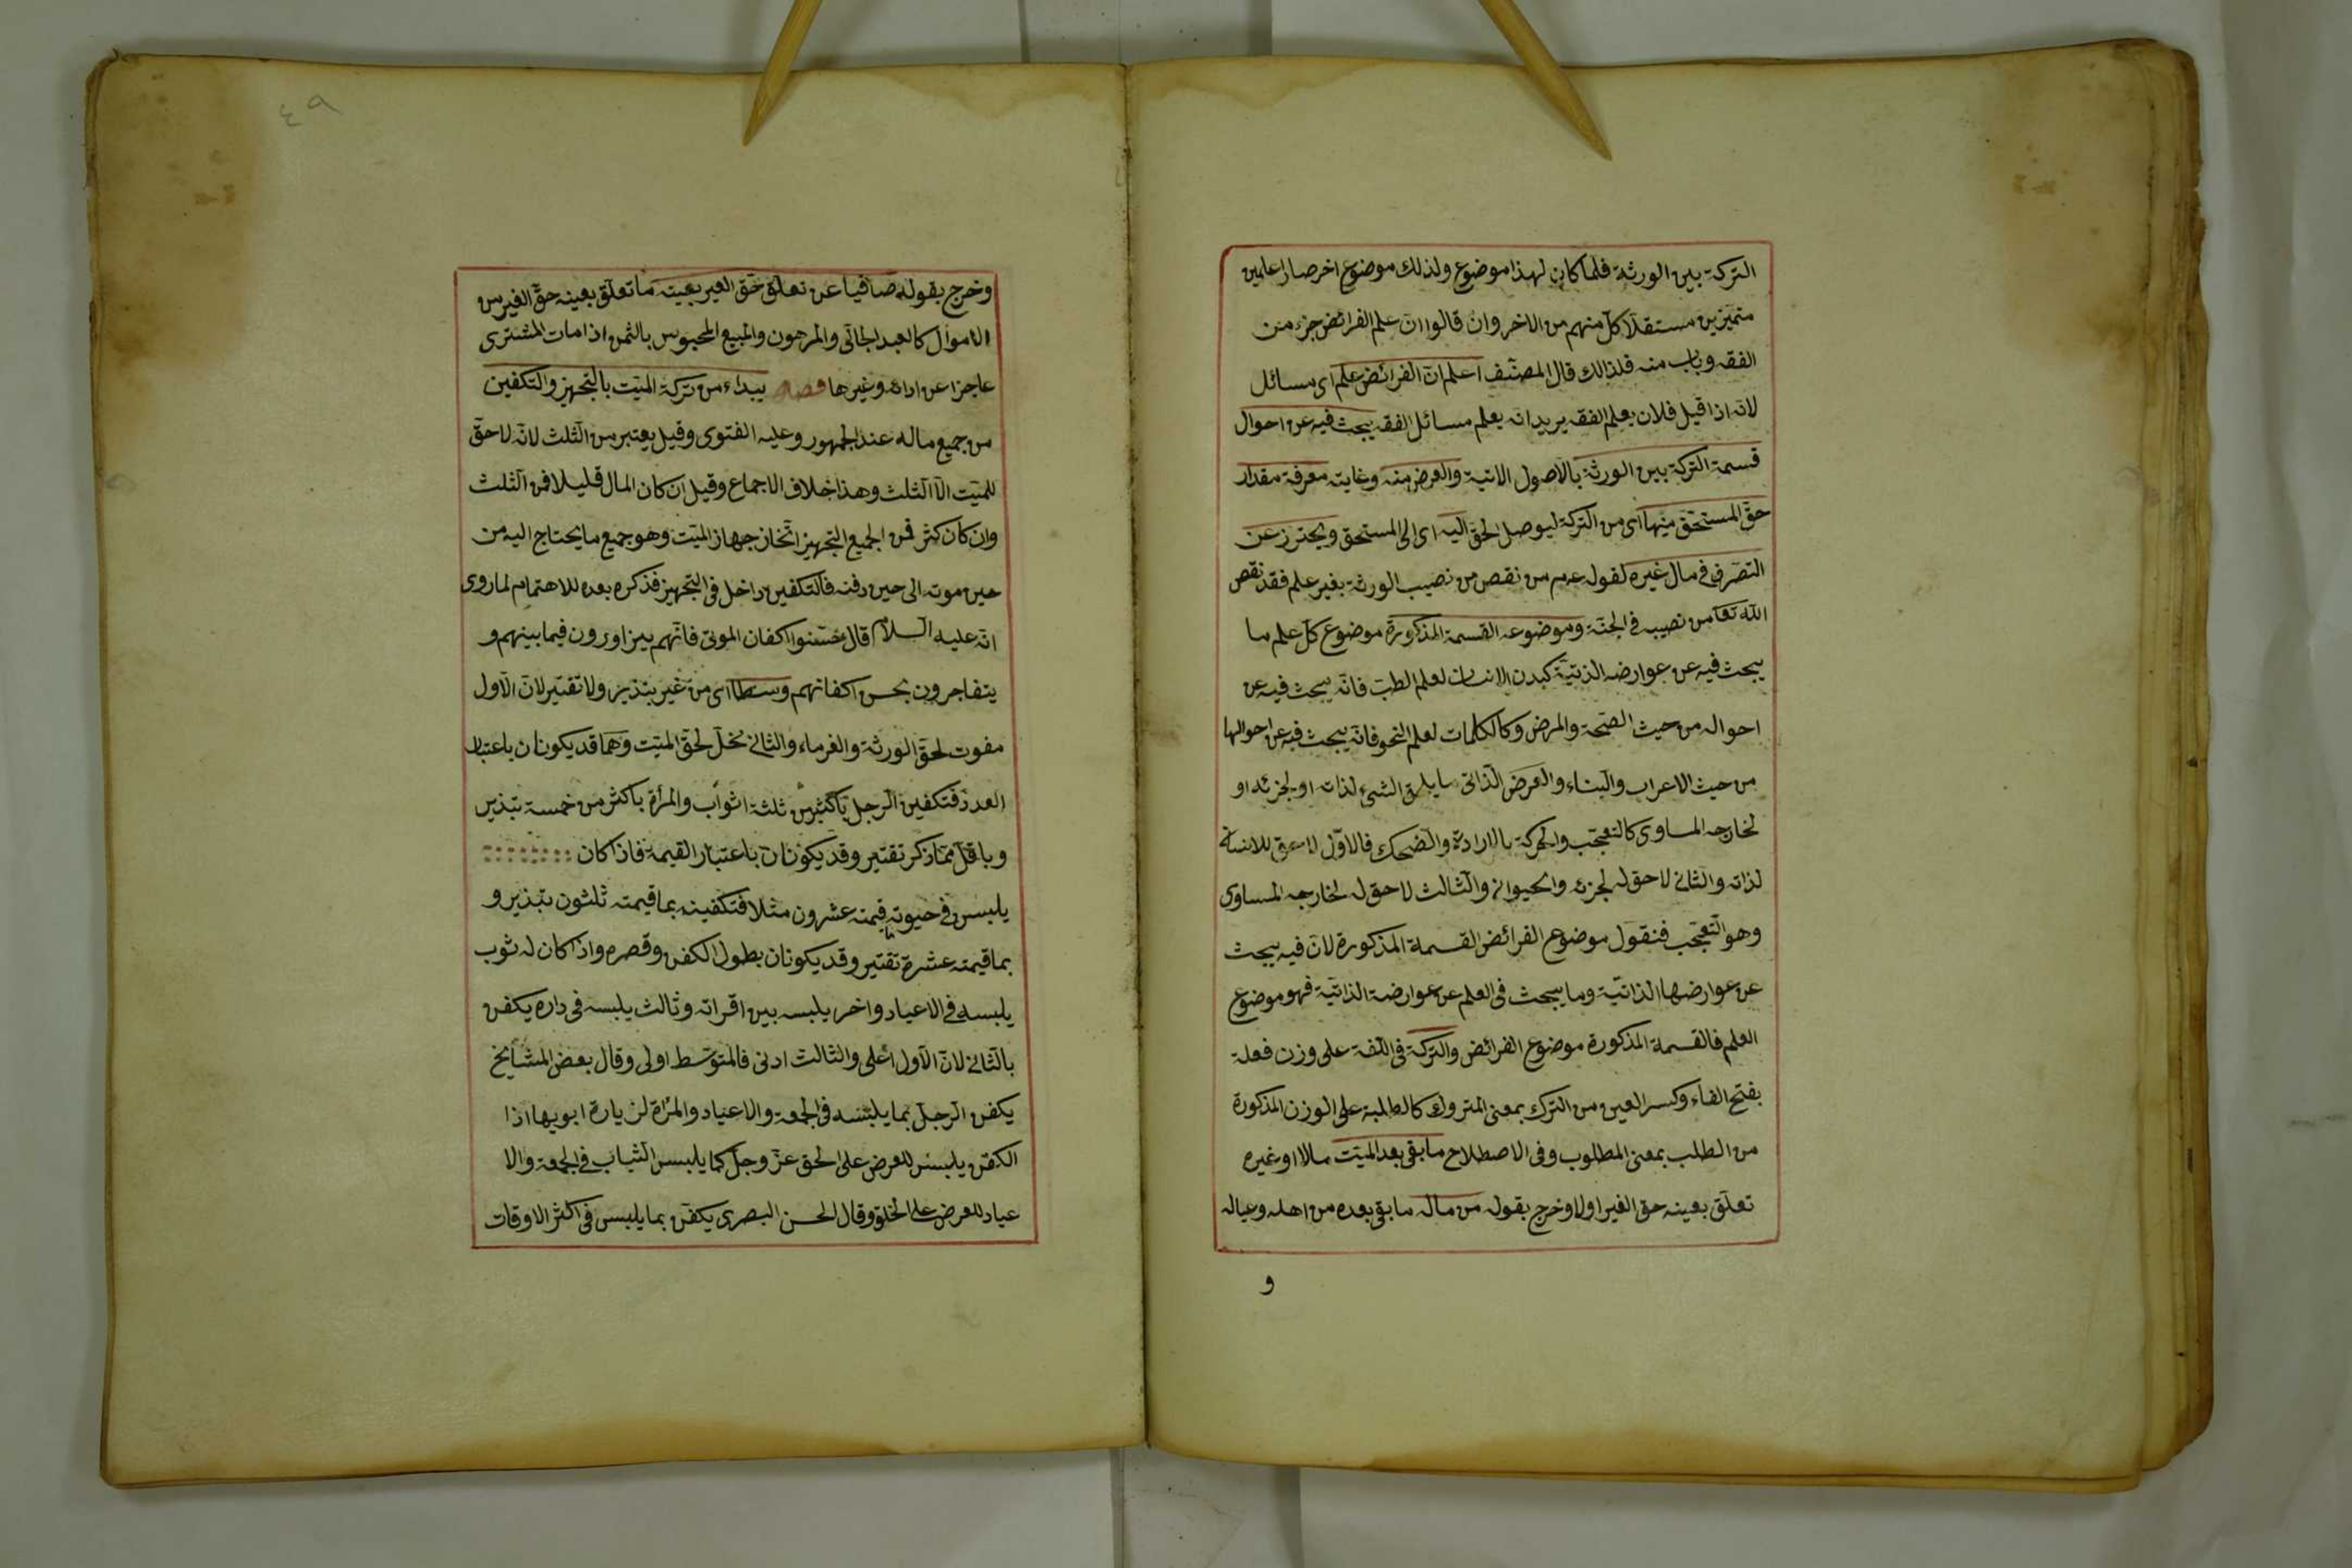 التركة بين الورثة فلما كان لهذا موضوع ولذلك موضوع اخر صارا علمين
متميزين مستقلا كل منهم من الاخر وان قالوا ان علم الفرائض جزء من
الفقه وباب منه فلذالك قال المصنف اعلم ان الفرائض علم اى مسائل
لانه اذا قيل فلان يعلم الفقه يريد انه يعلم مسائل الفقه يبحث فيه عن احوال
قسمة التركة بين الورثة بالاصول الاتية والغرض منه وغايته معرفة مقدار
حق المستحق منها اى من التركة ليوصل الحق اليه اى الى المستحق ويحترز عن
التصرف فى مال غيره لقوله عم من نقص من نصيب الورثة بغير علم فقد نقص
الله تعا من نصيبه فى الجنة وموضوعه القسمة المذكورة موضوع كل علم ما
يبحث فيه عن عوارضه الذتية كبدن الانسان لعلم الطب فانه يبحث فيه عن
احواله من حيث الصحة والمرض وكالكلمات لعلم النحو فانه يبحث فيه عن احوالها
من حيث الاعراب والبناء والعرض الذاتى ما يلحق الشئ لذاته او لجزئه او
لخارجه المساوى كالتعجب والحركة بالارادة والضحك فالاول لاحق للانسان
لذاته والثانى لاحق له لجزئه والحيوان والثالث لاحق له لخارجه المساوى
وهو التعجب فنقول موضوع الفرائض القسمة المذكورة لان فيه يبحث
عن عوارضها الذاتية وما يبحث فى العلم عن عوارضة الذاتية فهو موضوع
العلم فالقسمة المذكورة موضوع الفرائض والتركة فى اللغة على وزن فعلة
بفتح الفاء وكسر العين من الترك بمعنى المتروك كالطلبة على الوزن المذكورة
من الطلب بمعنى المطلوب وفى الاصطلاح ما بقى بعد الميت مالا او غيره
تعلق بعينه حق الغير اولا وخرج بقوله من ماله ما بقى بعده من اهله وعياله
و
٤٩
وخرج بقوله صافيا عن تعلق حق الغير بعينه ما تعلق بعينه حق الغير من
الاموال كالعبد الجانى والمرهون والمبيع المحبوس بالثمن اذا مات المشترى
عاجزا عن ادائه وغيرها يبداء من تركة الميت بالتجهيز والتكفين
من جميع ماله عند الجمهور وعليه الفتوى وقيل يعتبر من الثلث لانه لا حق
للميت الا الثلث وهذا خلاف الاجماع وقيل ان كان المال قليلا فمن الثلث
وان كان كثر فمن الجميع التجهيز اتخاز جهاز الميت وهو جميع ما يحتاج اليه من
حين موته الى حين دفنه فالتكفين داخل فى التجهيز فذكره بعده للاهتمام لما روى
انه عليه السلام قال حسنوا اكفان الموتى فانهم يتزاورون فيما بينهم و
يتفاجرون بحسن اكفانهم وسطا اى من غير بتذير ولا تقتير لان الاول
مفوت لحق الورثة والغرماء والثانى مخل لحق الميت وهما قد يكونان باعتبار
العدد فتكفين الرجل باكثر من ثلثة اثواب والمرأة باكثر من خمسة تبذير
وباقل مما ذكر تقتير وقد يكونان باعتبار القيمة فاذا كان
يلبس فى حيوته قيمته عشرون مثلا فتكفينه بما قيمته ثلثون تبذير و
بما قيمته عشرة تقتير وقد يكونان بطول الكفن وقصره واذا كان له ثوب
يلبسه فى الاعياد واخر يلبسه بين اقرانه وثالث يلبسه فى داره يكفن
بالثانى لان الاول اعلى والثالث ادنى فالمتوسط اولى وقال بعض المشايخ
يكفن الرجل بما يلبسه فى الجمعة والاعياد والمرأة لزيارة ابويها اذا
الكفن يلبس للعرض على الحق عز وجل كما يلبس الثياب فى الجمعة والا
عياد للعرض على الخلق وقال الحسن البصرى يكفن بما يلبس فى اكثر الاوقات